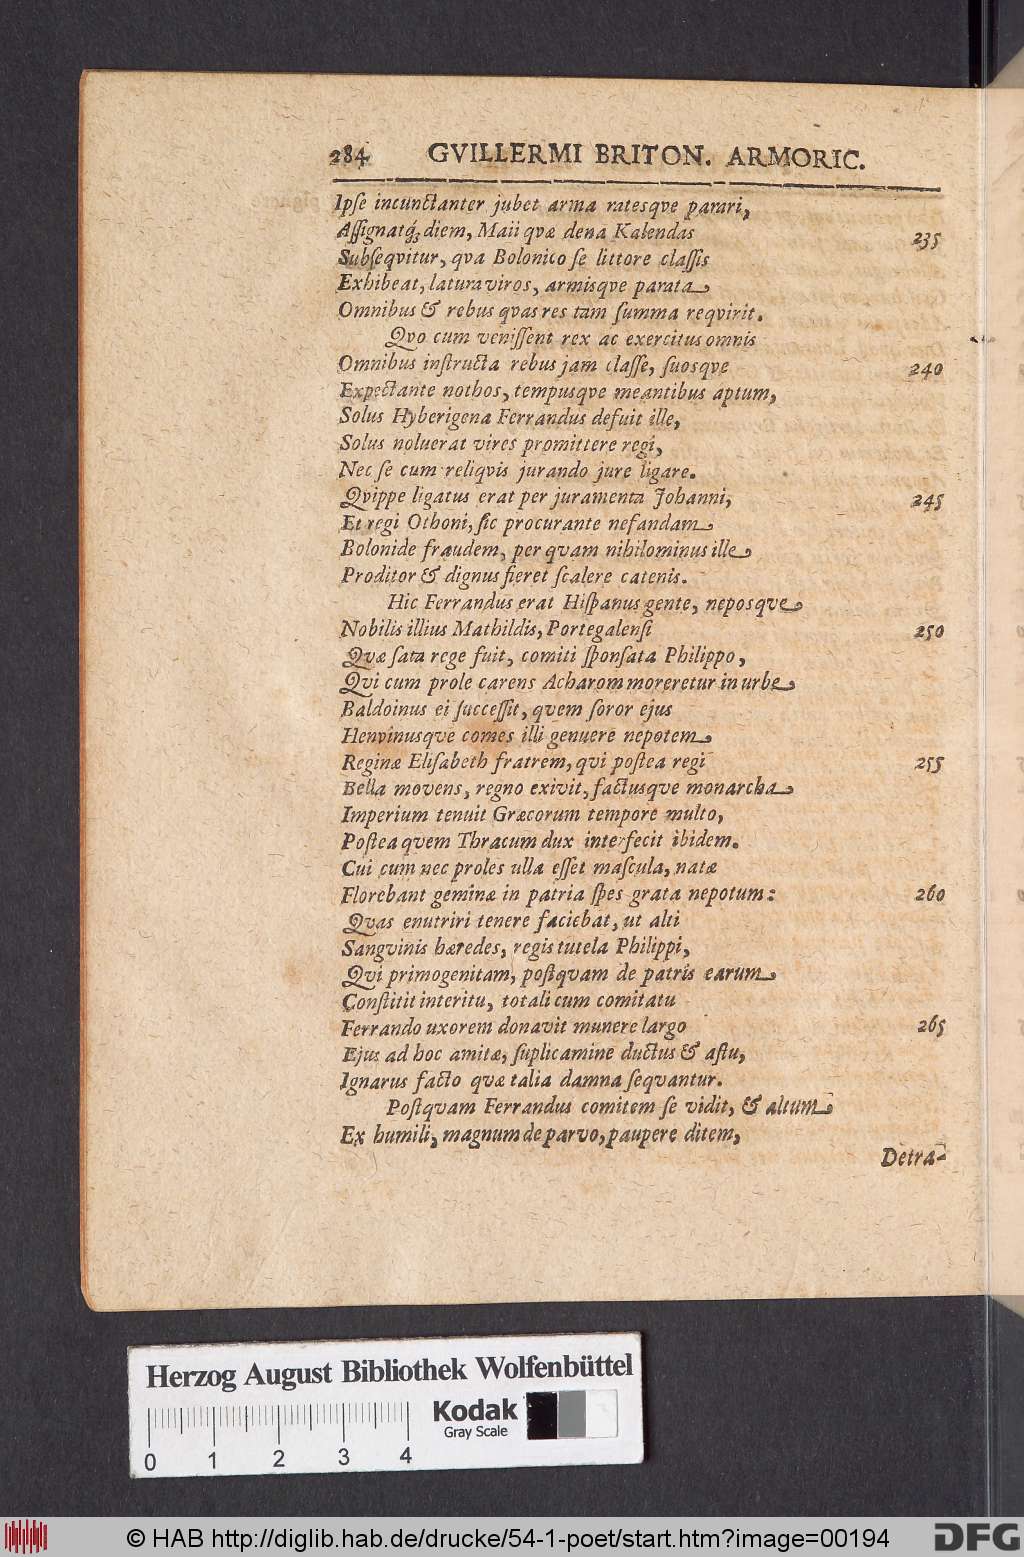 284 GVILLERMI BRITON. ARMORIC.
Ipſe incunctanter jubet arma ratesqve parari,
Aſſignatq́; diem, Maii qvæ dena Kalendas 235
Subſeqvitur, qva Bolonico ſe littore claſſis
Exhibeat, latura viros, armisqve parata
Omnibus & rebus qvas res tam ſumma reqvirit.
Qvo cum veniſſent rex ac exercitus omnis
Omnibus inſtructa rebus jam claſſe, ſuosqve 240
Expectante nothos, tempusqve meantibus aptum,
Solus Hyberigena Ferrandus defuit ille,
Solus noluerat vires promittere regi,
Nec ſe cum reliqvis jurando jure ligare.
Qvippe ligatus erat per juramenta Johanni, 245
Et regi Othoni, ſic procurante nefandam
Bolonide fraudem, per qvam nihilominus ille
Proditor & dignus fieret ſcalere catenis.
Hic Ferrandus erat Hiſpanus gente, neposqve
Nobilis illius Mathildis, Portegalenſi 250
Qvæ ſata rege fuit, comiti ſponſata Philippo,
Qvi cum prole carens Acharom moreretur in urbe
Baldoinus ei ſucceſſit, qvem ſoror ejus
Henvinusqve comes illi genuere nepotem
Reginæ Eliſabeth fratrem, qvi poſtea regi 255
Bella movens, regno exivit, factusqve monarcha
Imperium tenuit Græcorum tempore multo,
Poſtea qvem Thracum dux interfecit ibidem.
Cui cum nec proles ulla eſſet maſcula, natæ
Florebant geminæ in patria ſpes grata nepotum: 260
Qvas enutriri tenere faciebat, ut alti
Sangvinis hæredes, regis tutela Philippi,
Qvi primogenitam, poſtqvam de patris earum
Conſtitit interitu, totali cum comitatu
Ferrando uxorem donavit munere largo 265
Ejus ad hoc amitæ, ſuplicamine ductus & aſtu,
Ignarus facto qvæ talia damna ſeqvantur.
Poſtqvam Ferrandus comitem ſe vidit, & altum
Ex humili, magnum de parvo, paupere ditem,
Detra-
Herzog August Bibliothek Wolfenbüttel
Kodak
Gray Scale
0 1 2 3 4
© HAB http://diglib.hab.de/drucke/54-1-poet/start.htm?image=00194
DFG